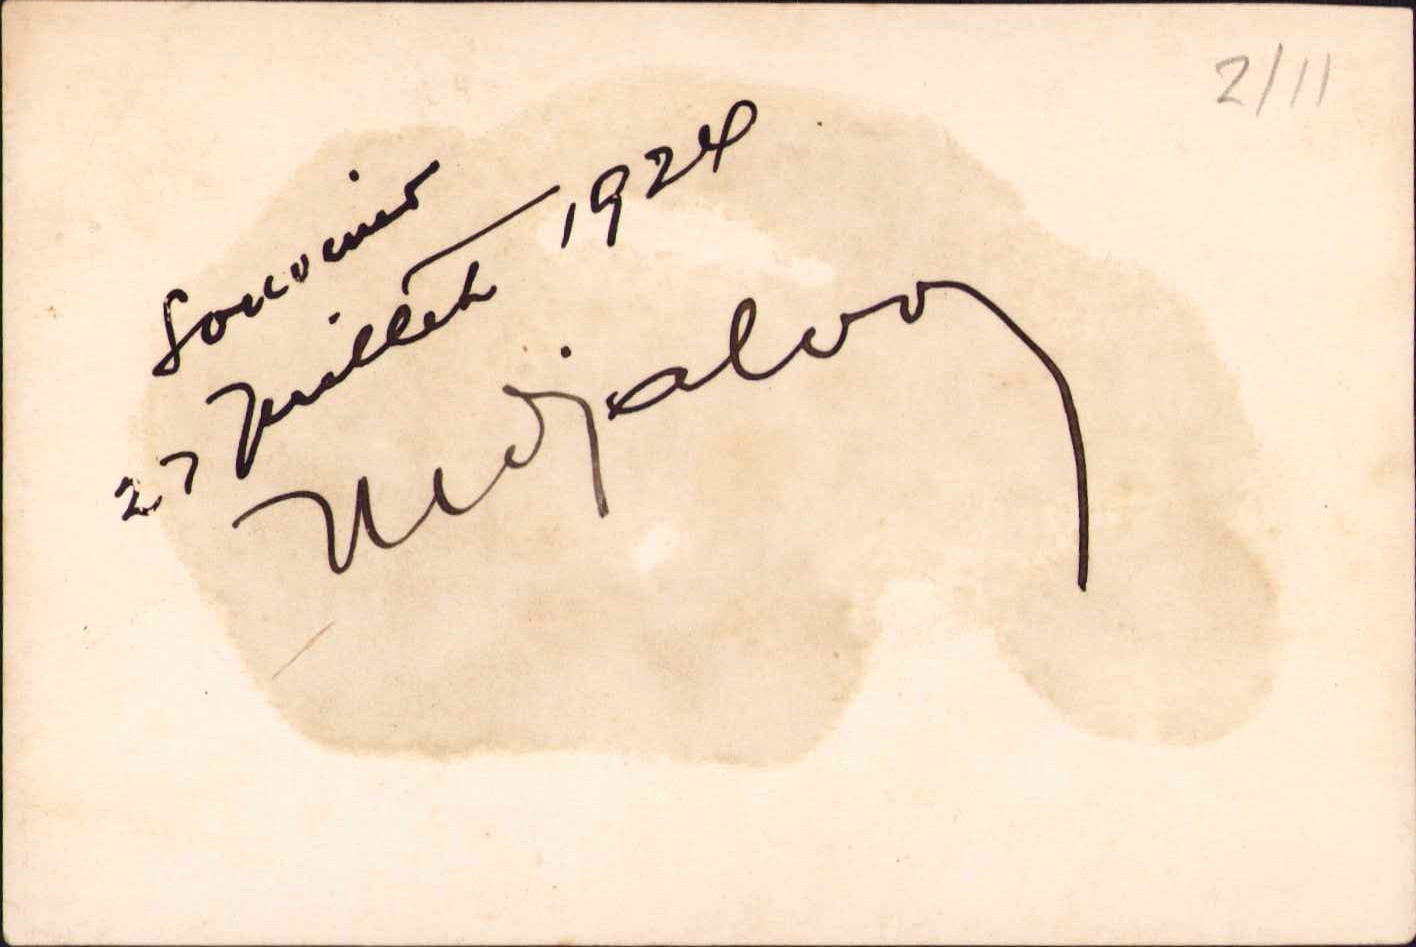 2/11
Souvenir
27 Juillet 1924